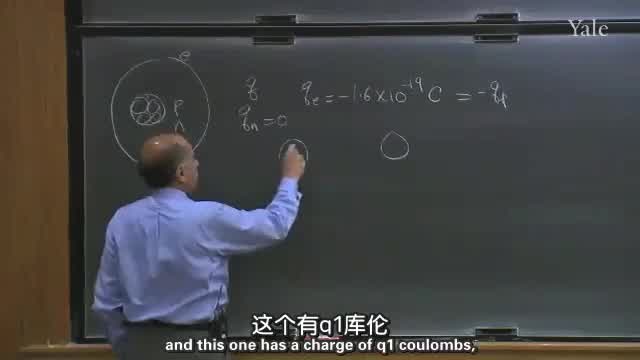 Yale
e
P
n
q
qₑ = -1.6 × 10⁻¹⁹ C = -qₚ
qₙ = 0
这个有q1库伦
and this one has a charge of q1 coulombs,